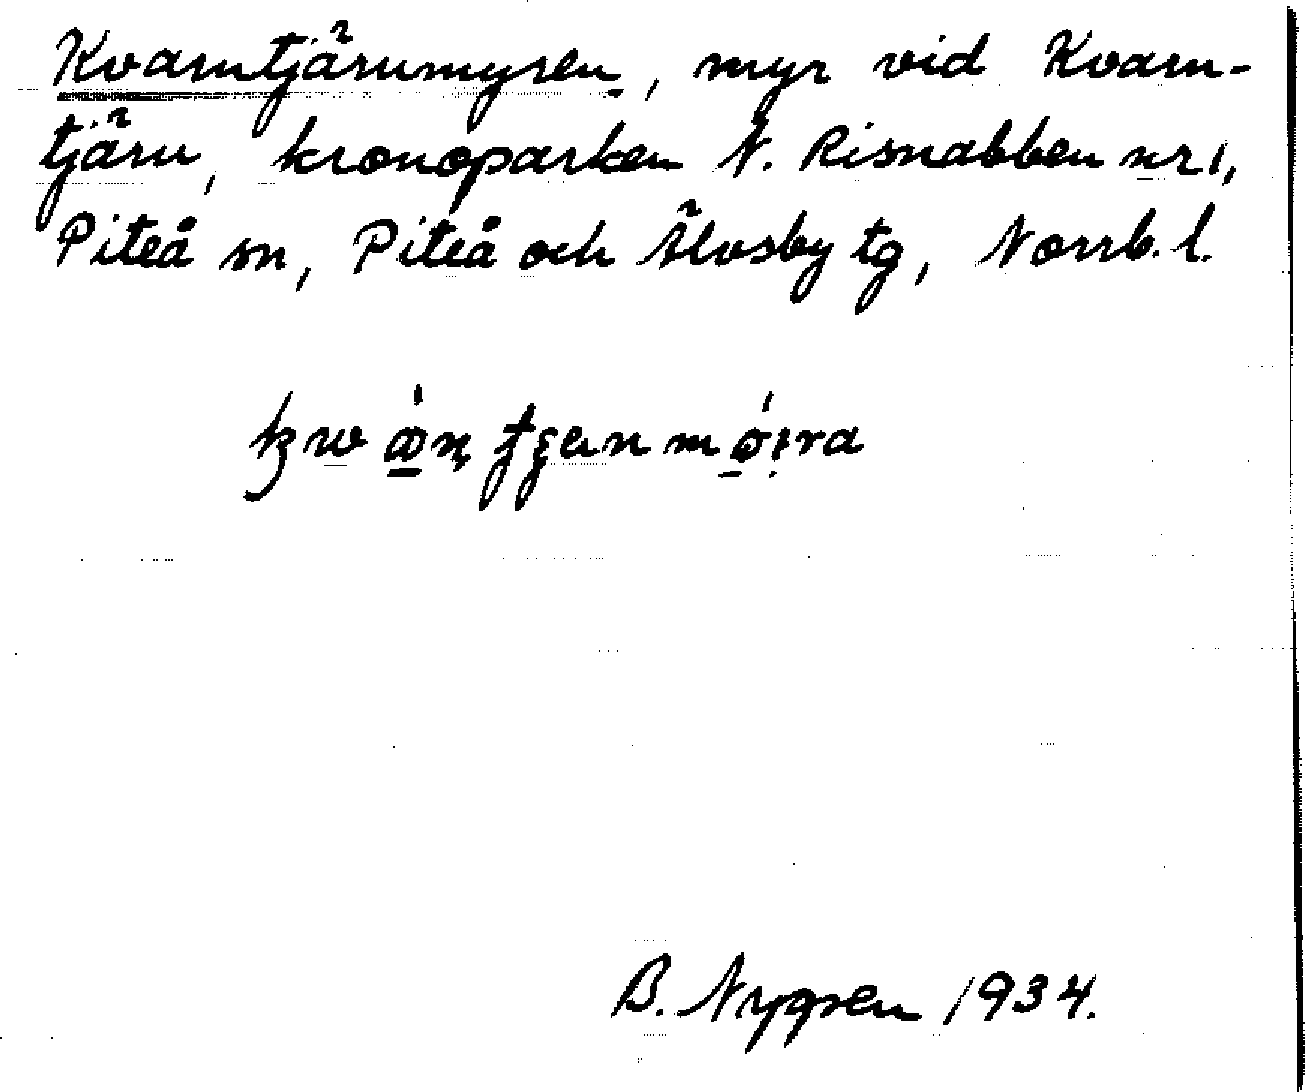 Kvarntjärnmyren, myr vid Kvarn-
tjärn, kronoparken N. Risnabben nr 1,
Piteå sn, Piteå och Älvsby tg, Norrb. l.
B. Nygren 1934.